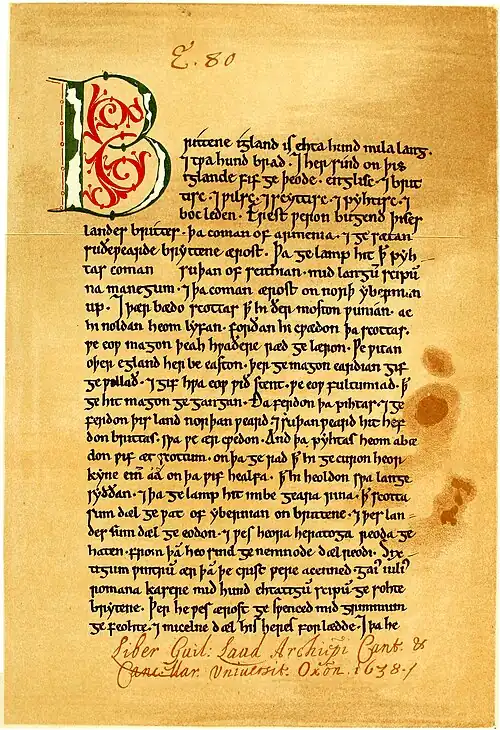 E. 80
Brittene igland is ehta hund mila lang.
⁊ tƿa hund brad. ⁊ her sind on þis
iglande fif ge þeode. englisc. ⁊ brit
tisc. ⁊ ƿilsc. ⁊ scyttisc. ⁊ pyhtisc. ⁊
boc leden. Erest ƿeron bugend þises
landes brittes. þa coman of armenia. ⁊ ge sætan
suðeƿearde bryttene ærost. Þa ge lamp hit ꝥ pyh
tas coman suþan of scithian. mid langū scipū
na manegum. ⁊ þa coman ærost on norþ ybernian
up. ⁊ þær bædo scottas ꝥ hi ðer moston ƿunian. ac
hi noldan heom lyfan. forðan hi cƿædon þa scottas.
ƿe eoƿ magon þeah hƿaðere ræd ge læron. Ƿe ƿitan
oþer egland her be easton. þer ge magon eardian gif
ge ƿillað. ⁊ gif hƿa eoƿ ƿið stent. ƿe eoƿ fultumiað. ꝥ
ge hit magon ge gangan. Ða ferdon þa pihtas. ⁊ ge
ferdon þis land norþan ƿeard. ⁊ suþan ƿeard hit hef
don brittas. sƿa ƿe ær cƿedon. And þa pyhtas heom abæ
don ƿif æt scottum. on þa ge rad ꝥ hi ge curon heora
kyne cin áá on þa ƿif healfa. ꝥ hi heoldon sƿa lange
syððan. ⁊ þa ge lamp hit imbe geara rina. ꝥ scotta
sum dæl ge ƿat of ybernian on brittene. ⁊ þes lan
des sum dæl ge eodon. ⁊ ƿes heora heratoga reoda ge
haten. from þā heo sind ge nemnode dæl reodi. Six
tigum ƿintrū ær þā þe crist ƿere acenned. gai' iuli'
romana kasere mid hund ehtatigū scipū ge sohte
brytene. Þer he ƿes ærost ge sƿenced mid grimmum
ge feohte. ⁊ micelne dæl his heres forlædde. ⁊ þa he
Liber Guil: Laud Archiepi Cant. &
Canc: Uniuersit. Oxon. 1638.